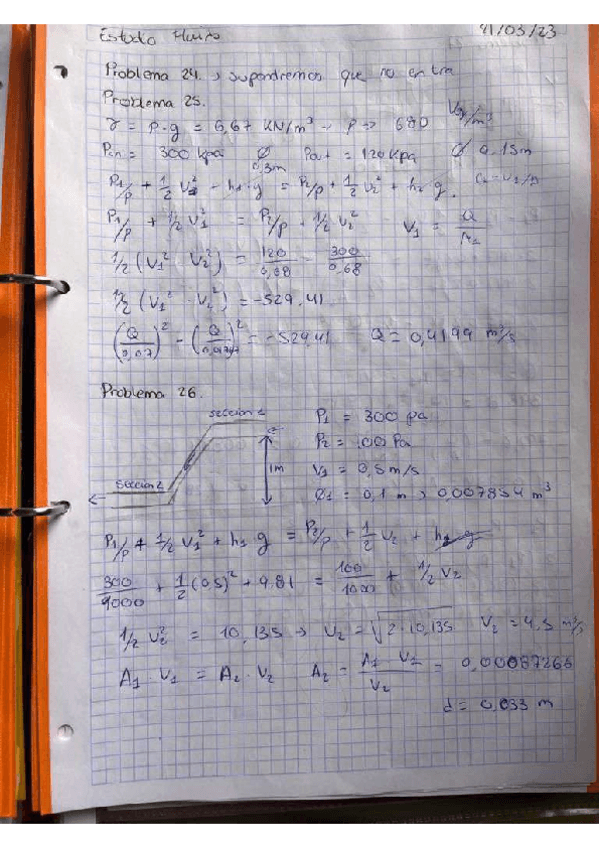 Estado Fluixo 21/03/23
Problema 24. → supondremos que no entra
Problema 25.
γ = ρ·g = 6,67 KN/m³ → ρ → 680 kg/m³
Pin = 300 kpa Ø 0,3m Pout = 120 Kpa Ø 0,15m
P1/ρ + 1/2 V1² + h1·g = P2/ρ + 1/2 V2² + h2·g.
P1/ρ + 1/2 V1² = P2/ρ + 1/2 V2² V1 = Q/A1
1/2 (V1² - V2²) = 120/0,68 - 300/0,68
1/2 (V1² - V2²) = -529,41
(Q/0,07)² - (Q/)² = -529,41 Q = 0,4199 m³/s
Problema 26.
sección 1
sección 2
1m
P1 = 300 pa
P2 = 100 Pa
V1 = 0,5 m/s
Ø1 = 0,1 m → 0,007854 m³
P1/ρ + 1/2 V1² + h1 g = P2/ρ + 1/2 V2 + h2 g
300/1000 + 1/2 (0,5)² + 9,81 = 100/1000 + 1/2 V2
1/2 V2² = 10,135 → V2 = √2·10,135 V2 = 4,5 m³/s
A1 · V1 = A2 · V2 A2 = A1 · V1/V2 = 0,00087266
d = 0,033 m